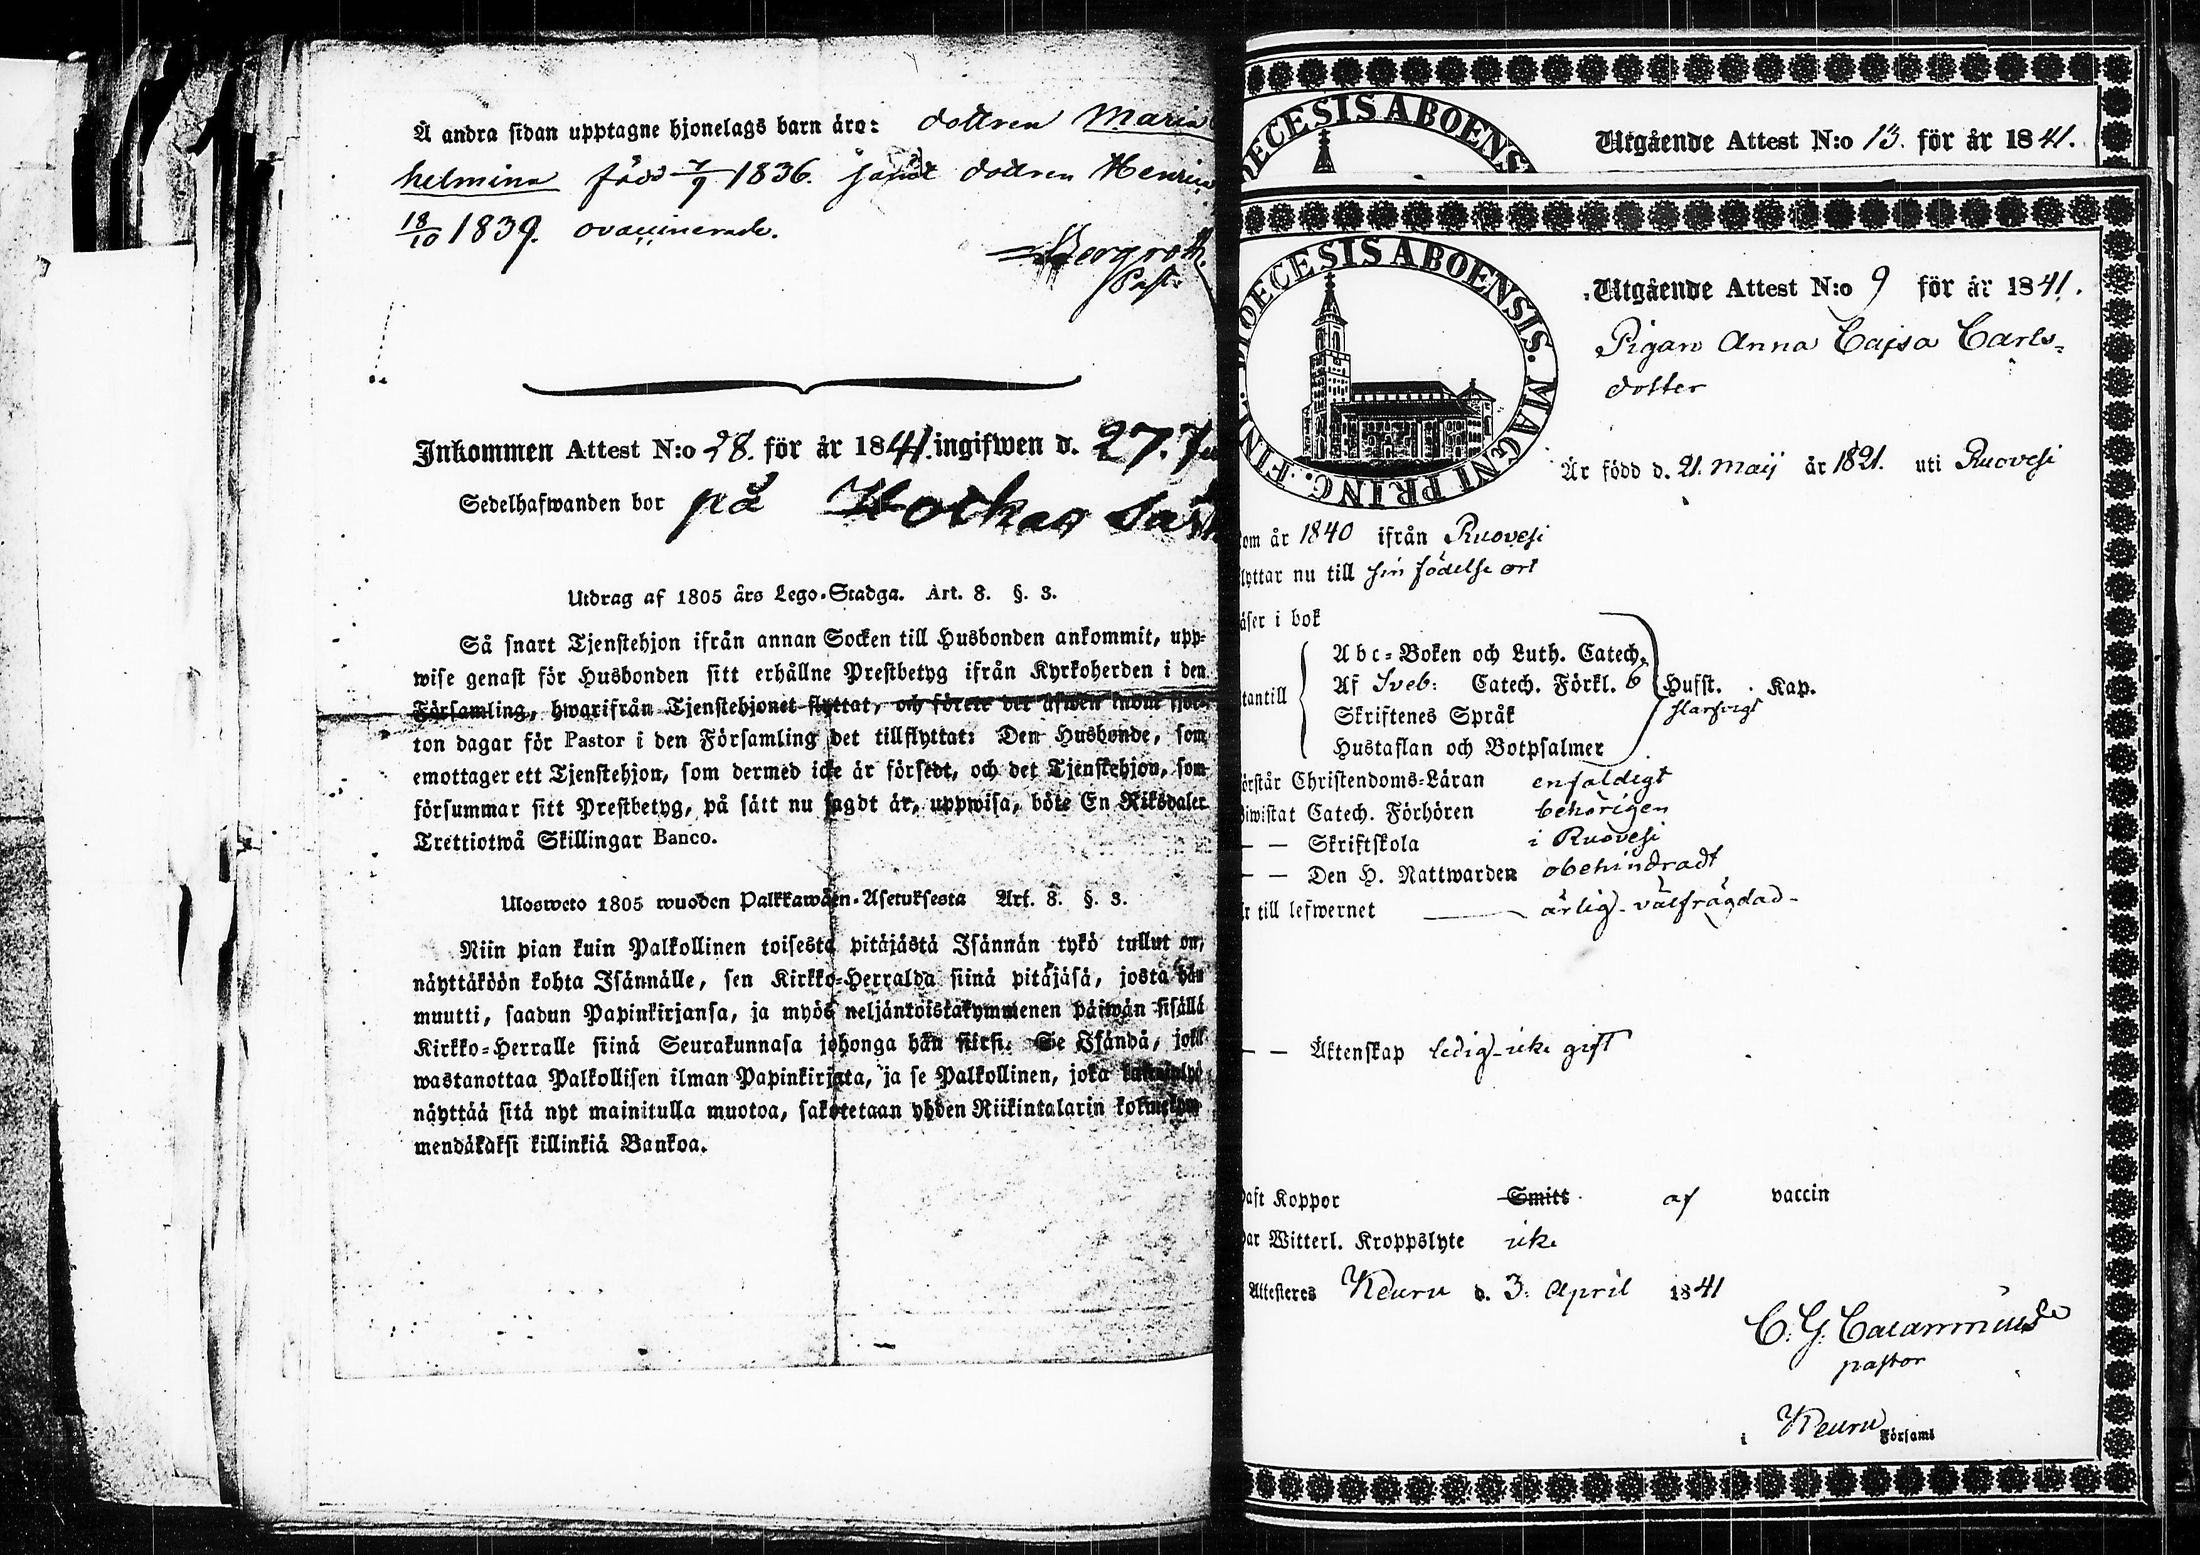 Å andra sidan upptagne hjonelags barn äro: dottren Maria
helmina född 7/9 1836. samt dottren
18/10 1839. ovaccinerade.
Bergroth
Past.
Inkommen Attest N:o 28. för år 1841. ingifwen d. 27.
Sedelhafwanden bor på
Utdrag af 1805 års Lego-Stadga. Art. 8. §. 3.
Så snart Tjenstehjon ifrån annan Socken till Husbonden ankommit, upp-
wise genast för Husbonden sitt erhållne Prestbetyg ifrån Kyrkoherden i den
Församling, hwarifrån Tjenstehjonet flyttat, och förete det äfwen inom fjor-
ton dagar för Pastor i den Församling det tillflyttat: Den Husbonde, som
emottager ett Tjenstehjon, som dermed icke är försedt, och det Tjenstehjon, som
försummar sitt Prestbetyg, på sätt nu sagdt är, uppwisa, böte En Riksdaler
Trettiotwå Skillingar Banco.
Ulosweto 1805 wuoden Palkkawäen-Asetuksesta Art. 8. §. 3.
Niin pian kuin Palkollinen toisesta pitäjästä Isännän tykö tullut on,
näyttäköön kohta Isännälle, sen Kirkko-Herralda siinä pitäjäsä, josta hän
muutti, saadun Papinkirjansa, ja myös neljäntoistakymmenen päiwän sisällä
Kirkko-Herralle siinä Seurakunnasa johonga hän siirsi. Se Isändä, joka
wastanottaa Palkollisen ilman Papinkirjata, ja se Palkollinen, joka
näyttää sitä nyt mainitulla muotoa, sakotetaan yhden Riikintalarin
mendäkaksi killinkiä Bankoa.
DIOECESIS ABOENS
Utgående Attest N:o 13. för år 1841.
DIOECESIS ABOENSIS. MAGNI PRINC. FINL.
Utgående Attest N:o 9 för år 1841.
Pigan Anna Cajsa Carls-
dotter
Är född d. 21. Maij år 1821. uti Ruovesi
om år 1840 ifrån Ruovesi
lyttar nu till sin födelse ort
äser i bok
Abc-Boken och Luth. Catech.
Af Sveb: Catech. Förkl. 6 Hufst. Kap.
tantill Skriftenes Språk slarfvigt
Hustaflan och Botpsalmer
örstår Christendoms-Läran enfaldigt
iwistat Catech. Förhören behörigen
— — Skriftskola i Ruovesi
— — Den H. Nattwarden obehindradt
r till lefwernet ärlig - välfrägdad -
— — Äktenskap ledig - icke gift
aft Koppor Smitt af vaccin
ar Witterl. Kroppslyte icke
Attesteres Keuru d. 3. April 1841
C. G. Calamnius
pastor
i Keuru Församl